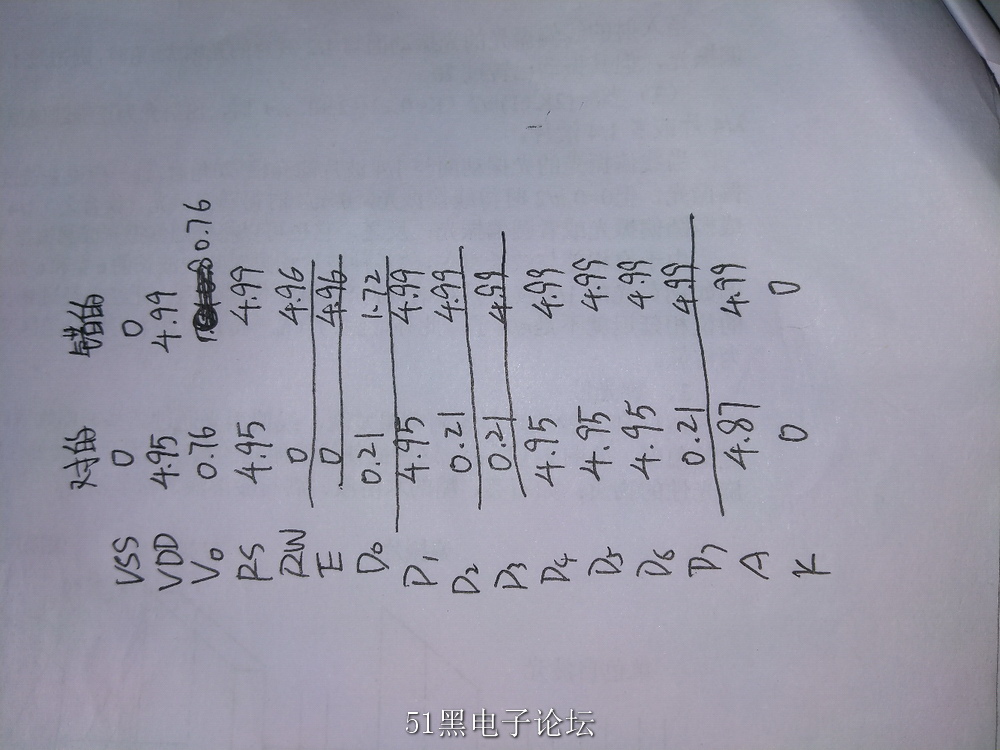 对的 错的
VSS 0 0
VDD 4.95 4.99
V0 0.76 0.76
RS 4.95 4.99
RW 0 4.96
E 0 4.96
D0 0.21 1.72
D1 4.95 4.99
D2 0.21 4.99
D3 0.21 4.99
D4 4.95 4.99
D5 4.95 4.99
D6 4.95 4.99
D7 0.21 4.99
A 4.87 4.99
K 0 0
51黑电子论坛